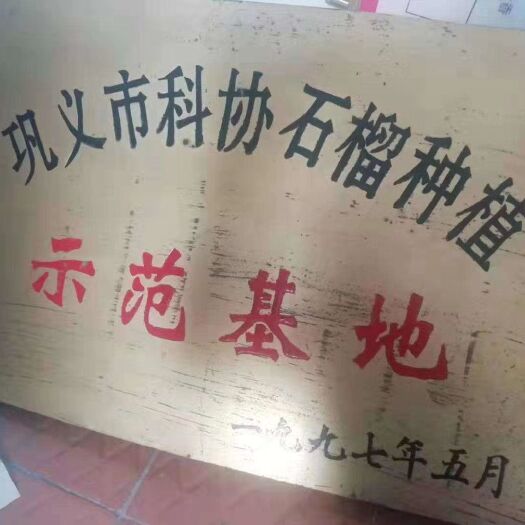 巩义市科协石榴种植
示范基地
一九九七年五月